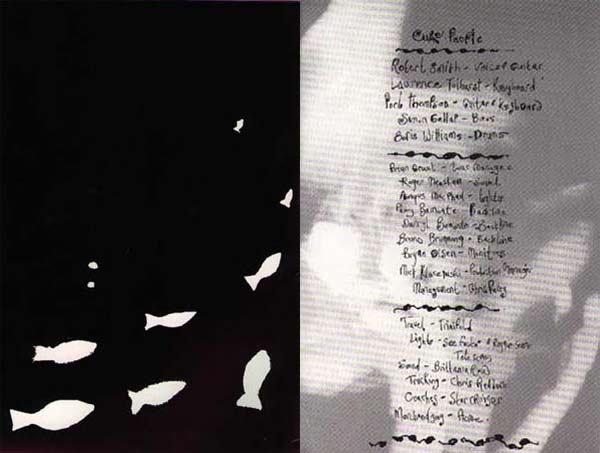 Cure People
Robert Smith - Voice & Guitar
Laurence Tolhurst - Keyboard
Porl Thompson - Guitar & Keyboard
Simon Gallup - Bass
Boris Williams - Drums
Brian Grant - Tour
Roger - Sound
Angus MacPhail - Lights
Perry Bamonte - Backline
Daryl Bamonte - Backline
Bruno Brunning - Backline
Bryan Olsen - Monitors
Mick Kluczynski - Production Manager
Management - Chris Parry
Travel - Trinifold
Lights -
Sound - Brittania Row
Trucking - Chris Redburn
Coaches - Star Cruiser
Merchandising - Acme.